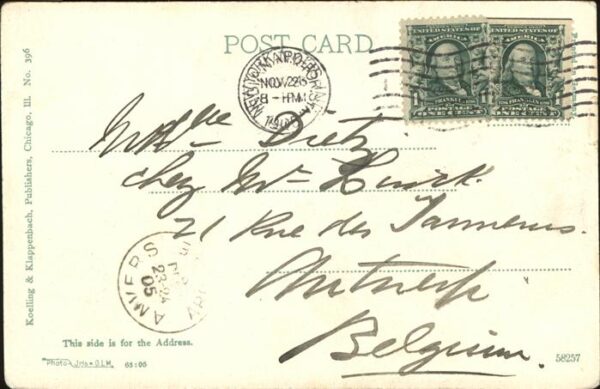 POST CARD
UNITED STATES OF AMERICA
UNITED STATES OF AMERICA
FRANKLIN
FRANKLIN
ONE CENT
ONE CENT
NEW YORK
NOV 22
8 - PM
1905
Koelling & Klappenbach, Publishers, Chicago, Ill. No. 396
Mdlle Dietz
chez Mr
21 Rue des Tanneurs.
Antwerp
Belgium.
ANVERS
23-24
05
This side is for the Address.
Photo-
65:05
58257